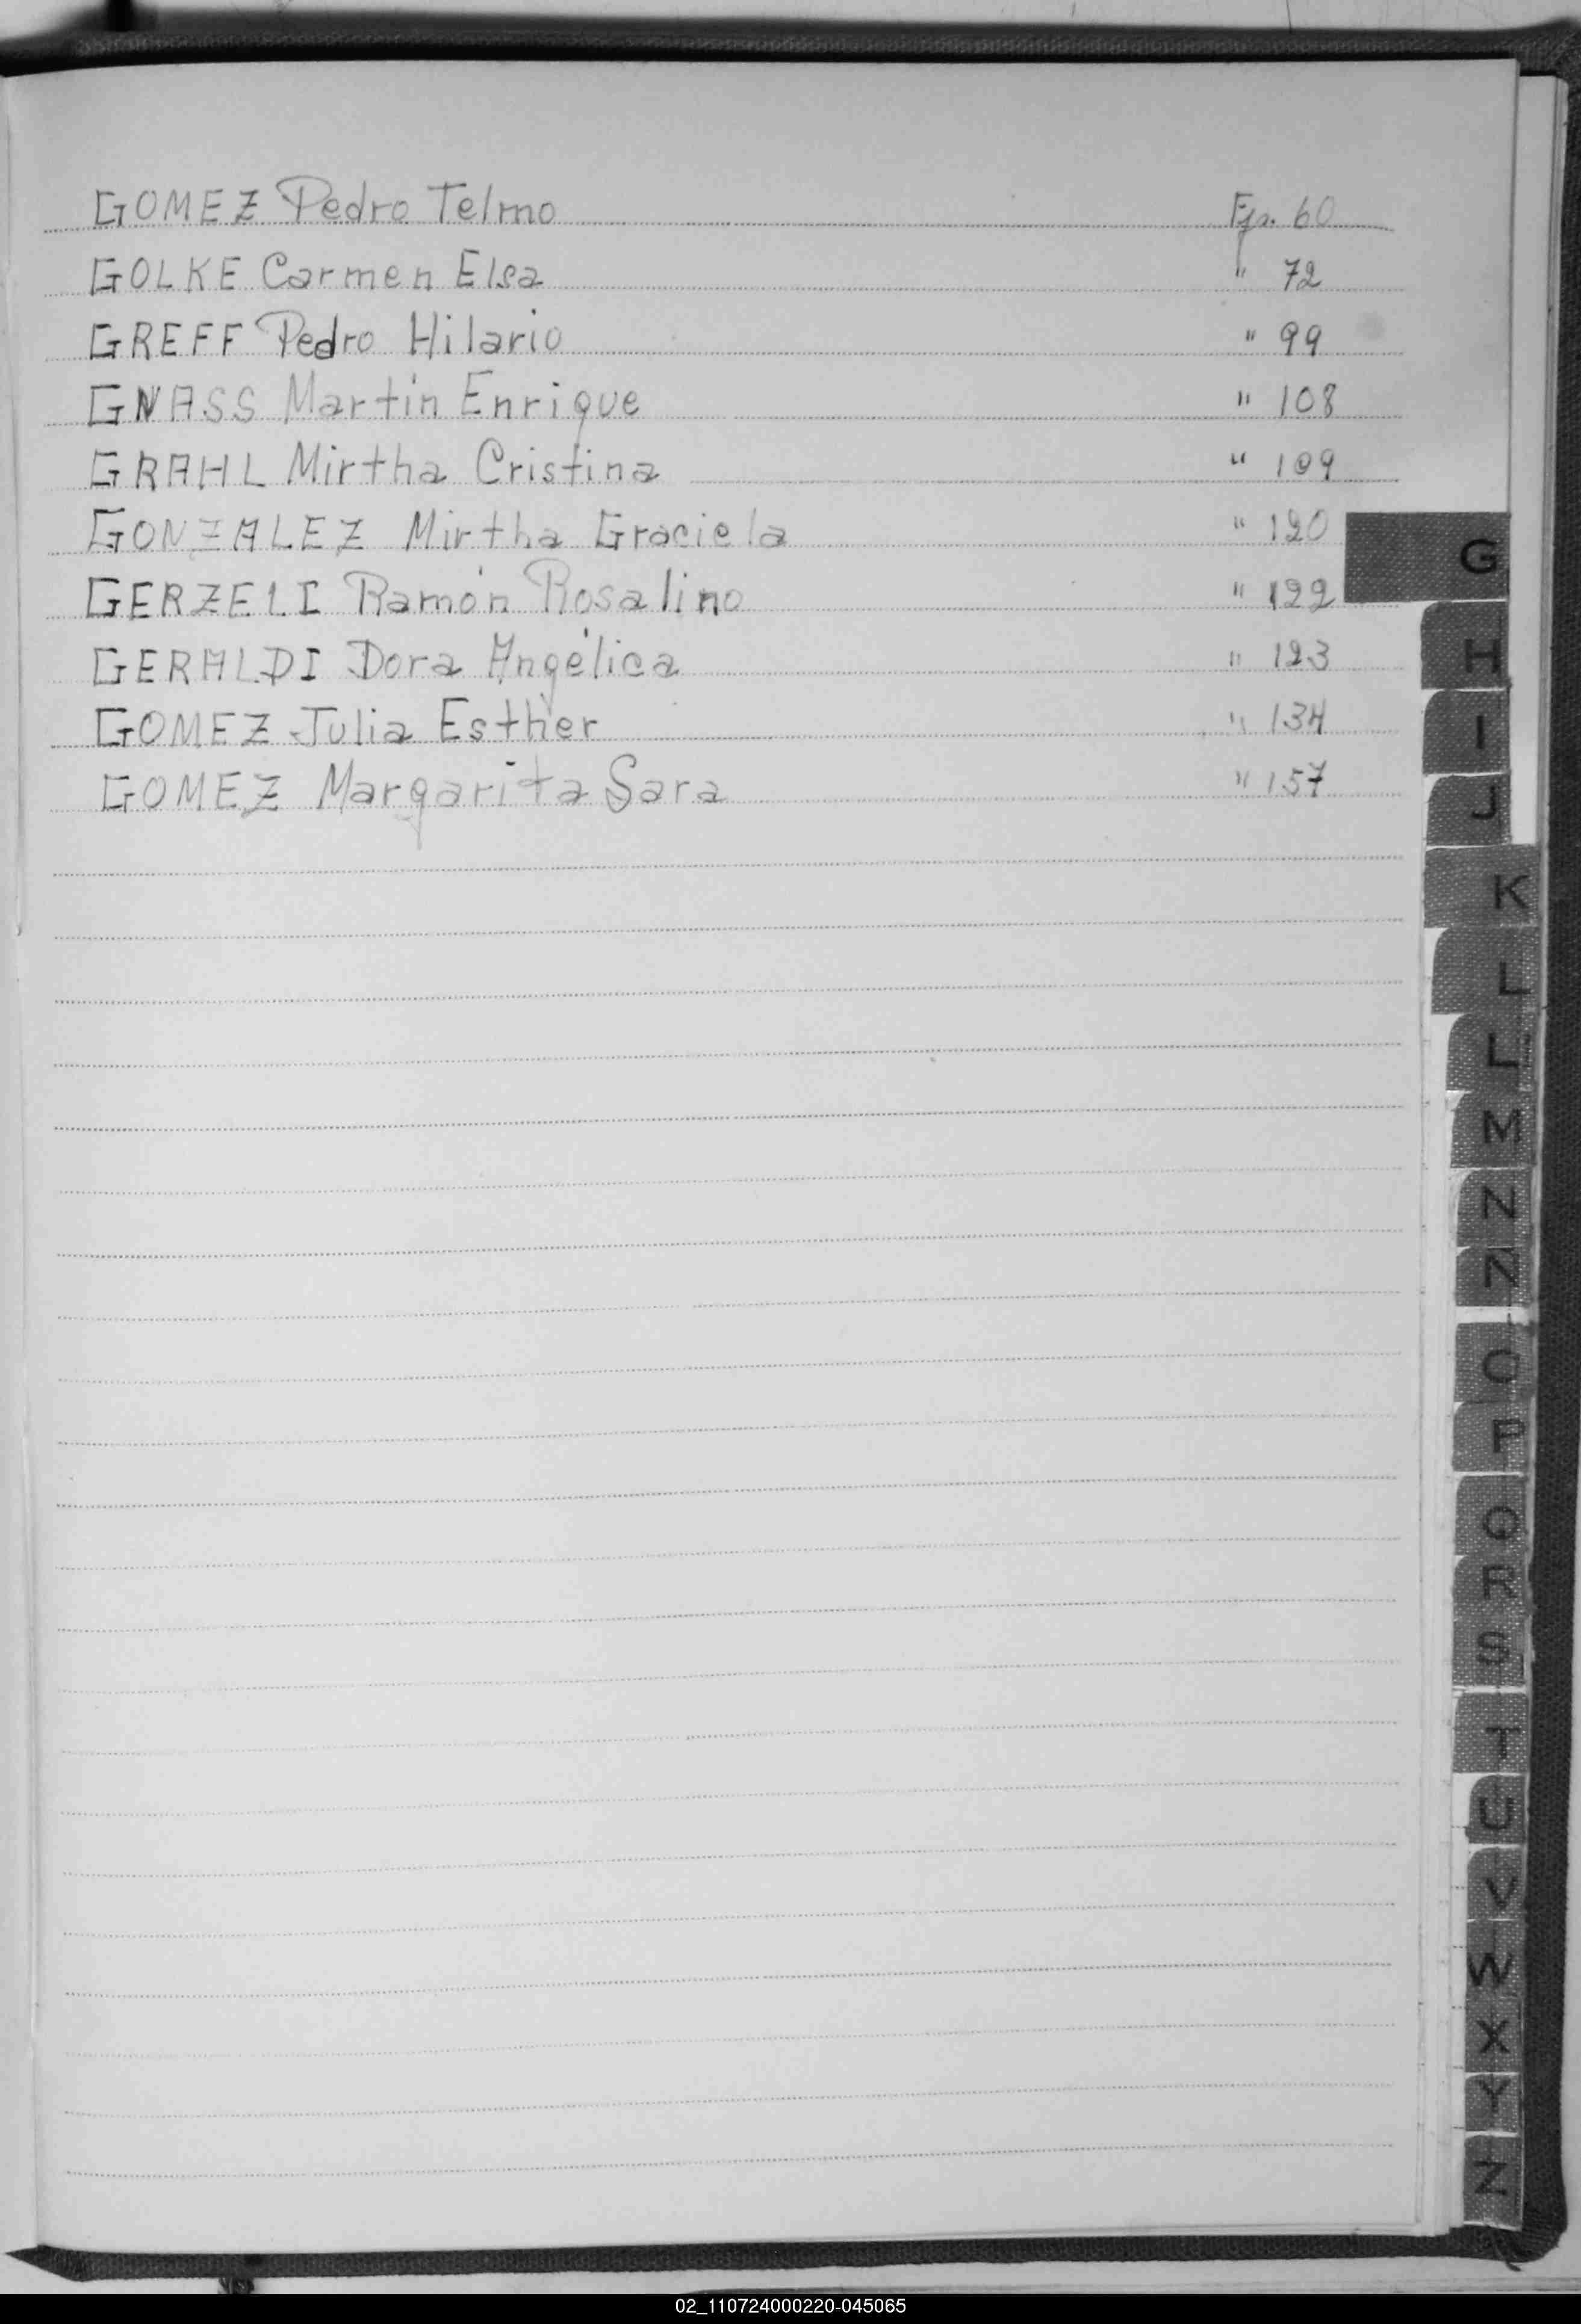 GOMEZ Pedro Telmo Fja. 60
GOLKE Carmen Elsa " 72
GREFF Pedro Hilario " 99
GNASS Martín Enrique " 108
GRAHL Mirtha Cristina " 109
GONZALEZ Mirtha Graciela " 120
GERZELI Ramón Rosalino " 122
GERALDI Dora Angélica " 123
GOMEZ Julia Esther " 134
GOMEZ Margarita Sara " 157
G
H
I
J
K
L
L
M
N
N
O
P
Q
R
S
T
U
V
W
X
Y
Z
02_110724000220-045065